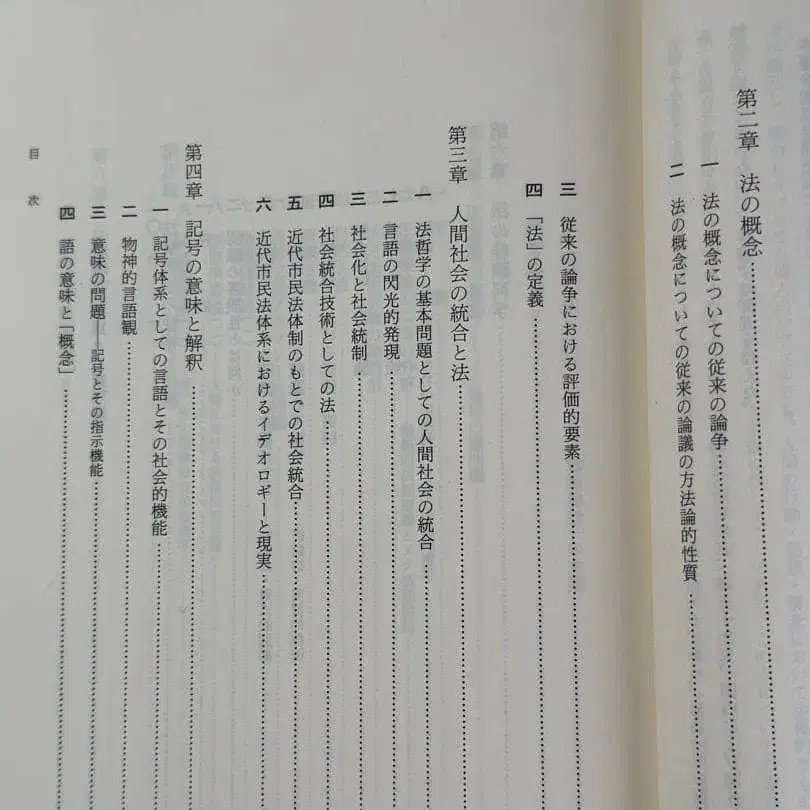 第二章 法の概念
一 法の概念についての従来の論争
二 法の概念についての従来の論議の方法論的性質
三 従来の論争における評価的要素
四 「法」の定義
第三章 人間社会の統合と法
一 法哲学の基本問題としての人間社会の統合
二 言語の閃光的発現
三 社会化と社会統制
四 社会統合技術としての法
五 近代市民法体制のもとでの社会統合
六 近代市民法体系におけるイデオロギーと現実
第四章 記号の意味と解釈
一 記号体系としての言語とその社会的機能
二 物神的言語観
三 意味の問題――記号とその指示機能
四 語の意味と「概念」
目次